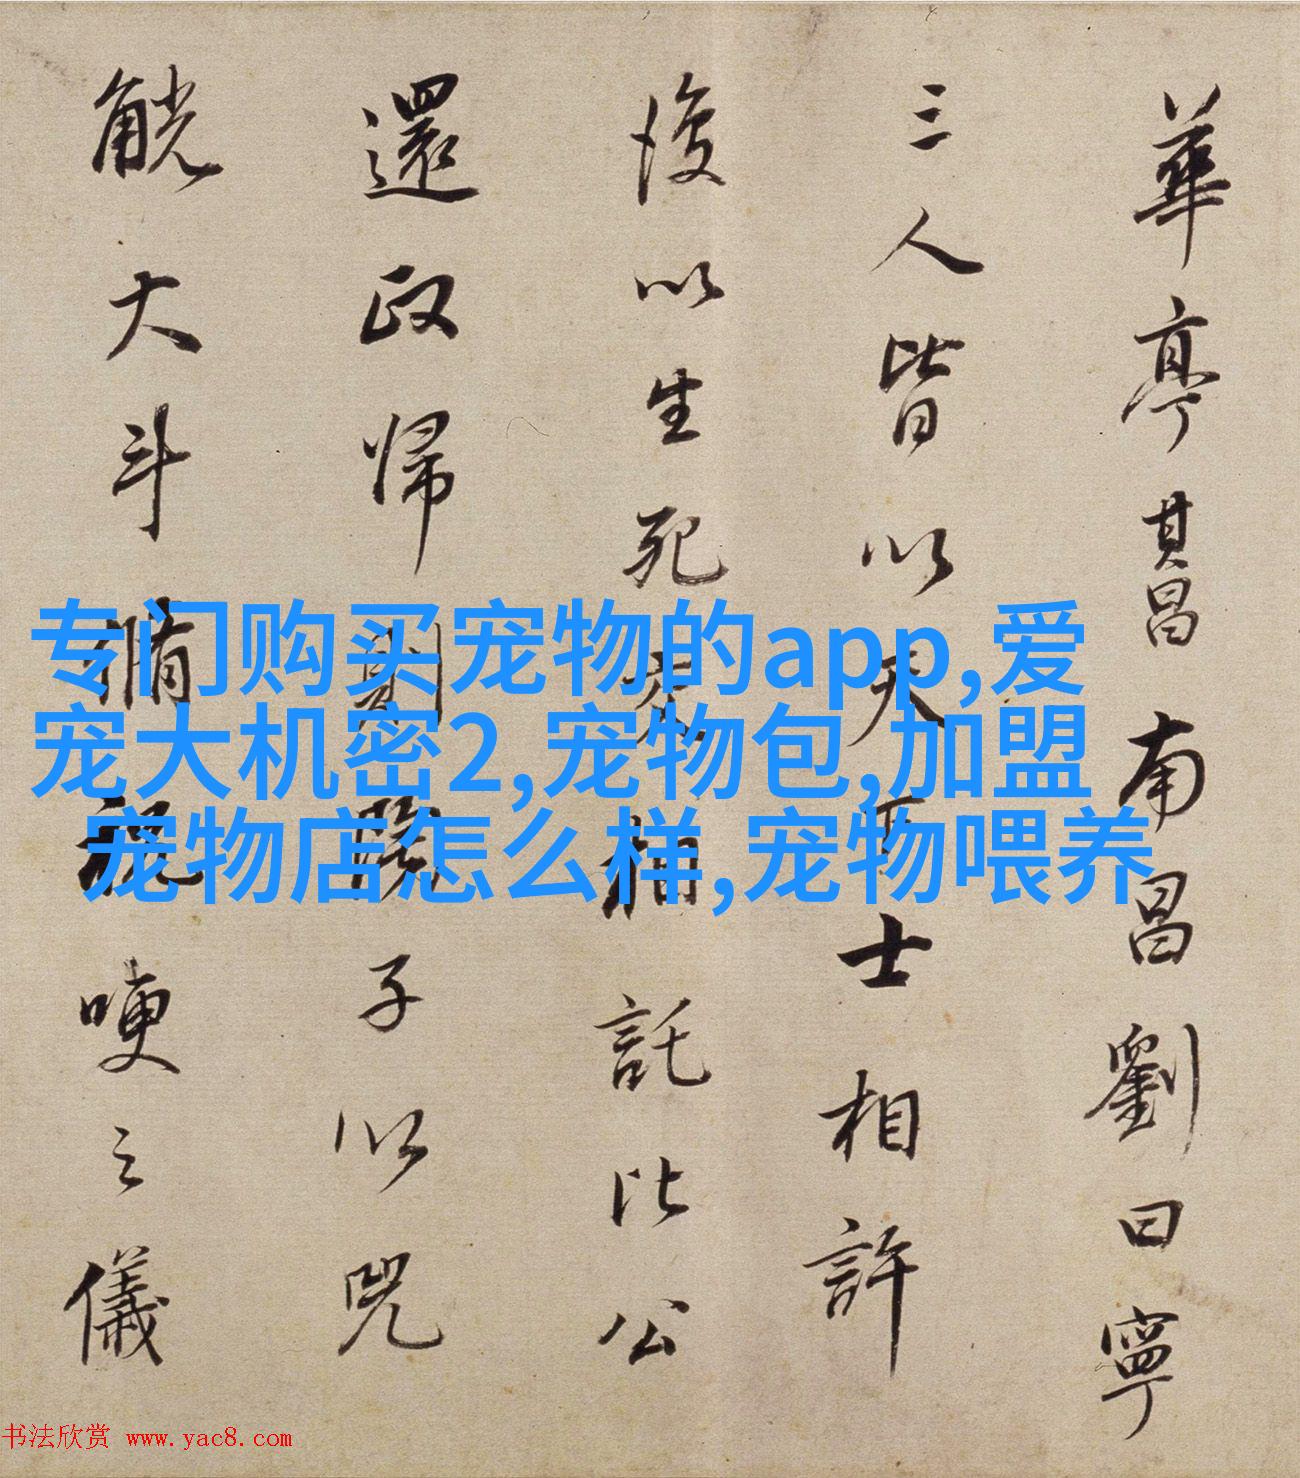 華亭其昌南昌劉曰寧
三人皆以天下士相許
後以生死交相託比公
還政歸則隆子以兕
觥大斗脩祝哽之儀
专门购买宠物的app,爱
宠大机密2,宠物包,加盟
宠物店怎么样,宠物喂养
书法欣赏 www.yac8.com